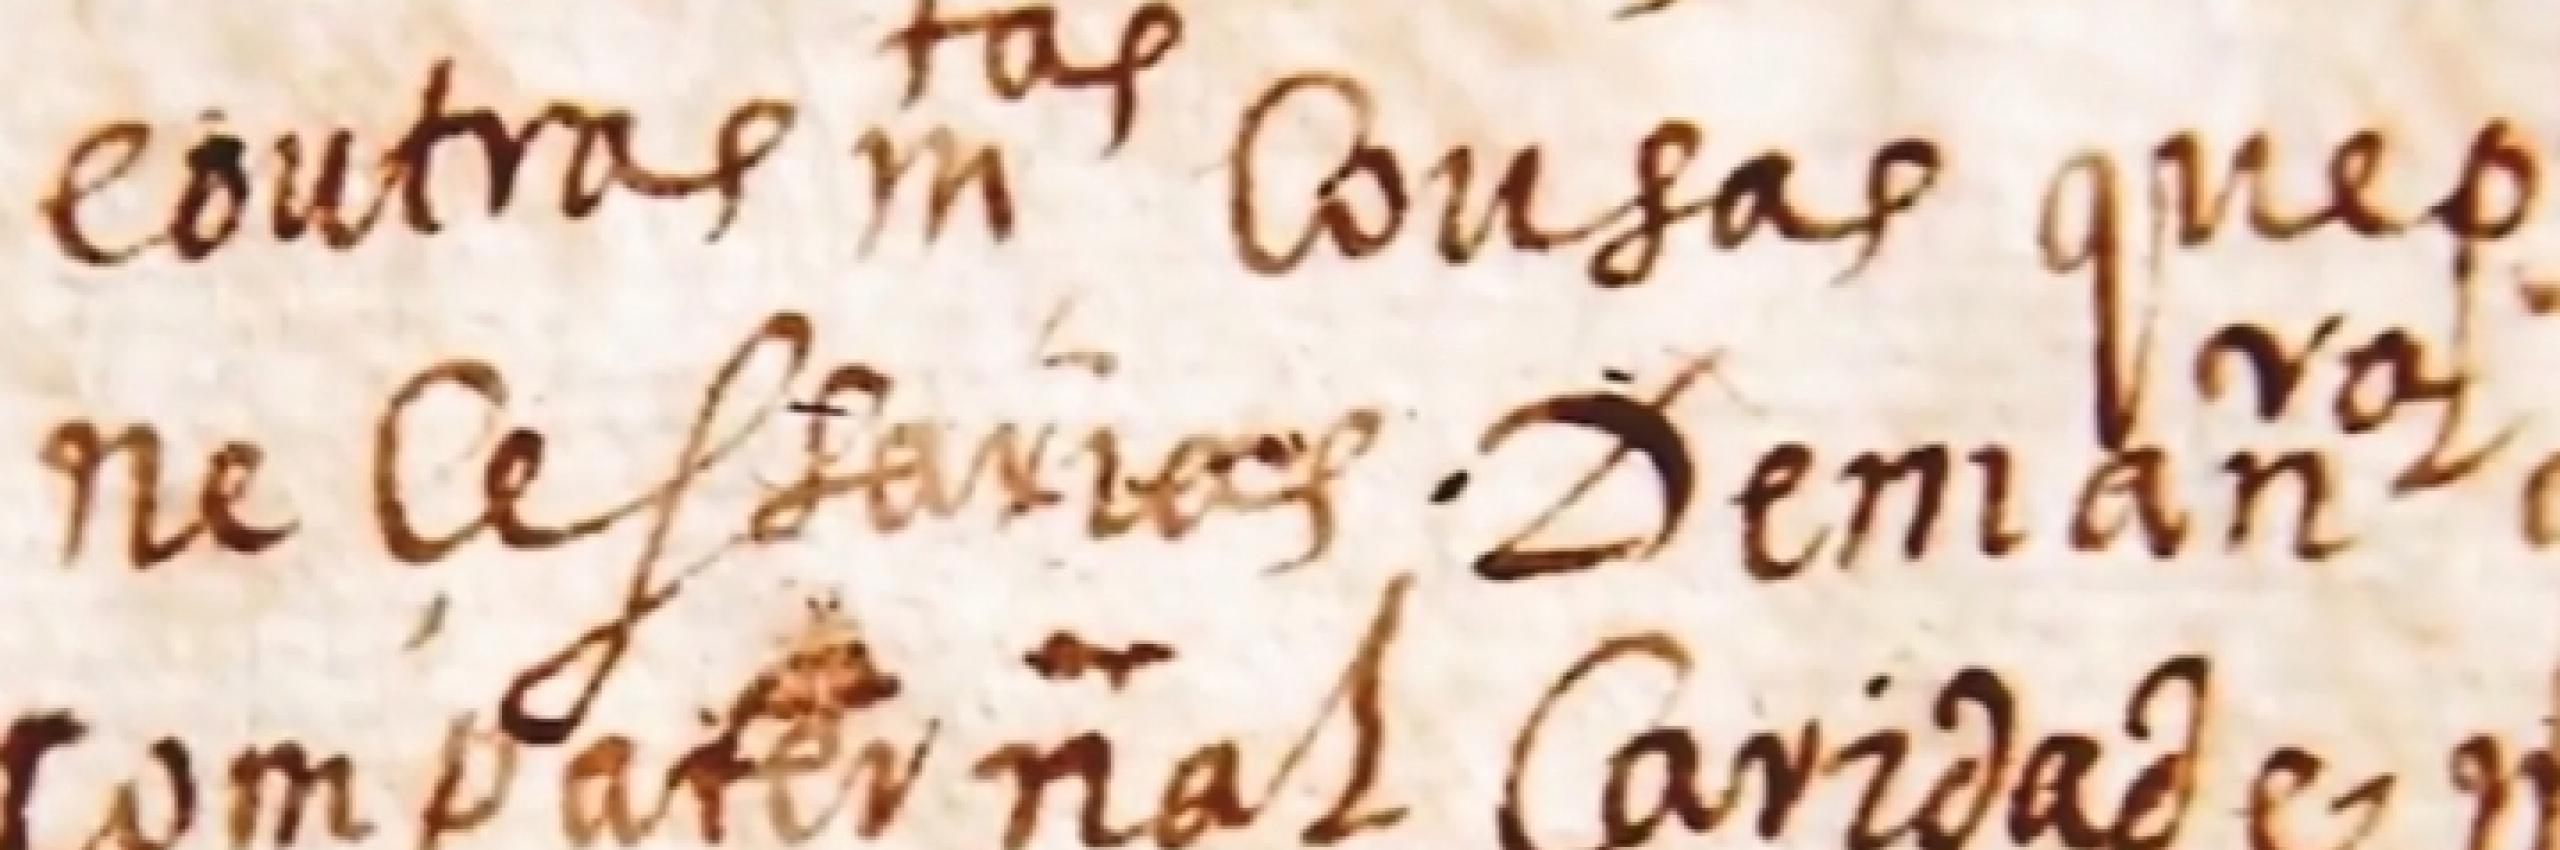 eoutras m.tas Cousas ques
ne Cessarios Deman
Com paternal Caridade